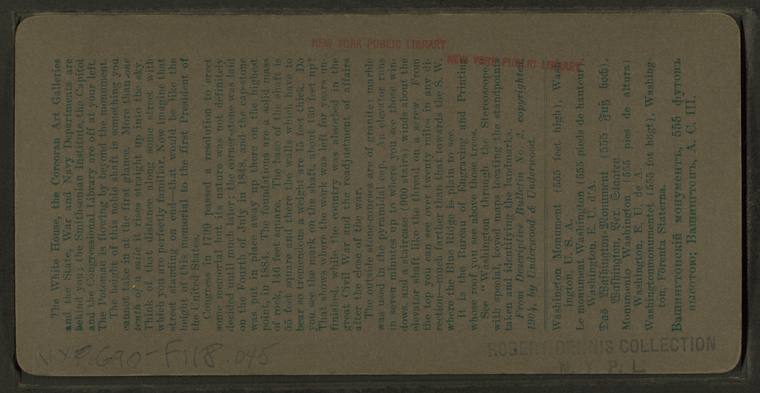 The White House, the Corcoran Art Galleries
and the State, War and Navy Departments are
behind you; the Smithsonian Institute, the Capitol
and the Congressional Library are off at your left.
The Potomac is flowing by beyond the monument.
The height of this noble shaft is something you
cannot take in at the first glance. More than
of a mile it rises straight up into the sky.
Think of that distance along some street with
which you are perfectly familiar. Now imagine that
street standing on end—that would be like the
height of this memorial to the first President of
the United States.
Congress in 1799 passed a resolution to erect
some memorial but its nature was not definitely
decided until much later; the corner-stone was laid
on the Fourth of July in 1848, and the capstone
was put in place away up there on the highest
point in 1884. The foundations are a solid mass
of rock, 146 feet square. The base of the shaft is
55 feet square and there the walls which have to
bear so tremendous a weight are 15 feet thick. Do
you see the mark on the shaft, about 150 feet up?
That shows where the work was left for years un-
finished while the country was absorbed in the
great Civil War and the readjustment of affairs
after the close of the war.
The outside stone-courses are of granite; marble
was used in the pyramidal cap. An elevator runs
as many times up and down as you are above with
down, and a staircase (900 stairs) winds about the
elevator shaft like the thread on a screw. From
the top you can see over twenty miles in any di-
rection—much farther than that towards the S. W.
where the Blue Ridge is plain to see.
It is the Bureau of Engraving and Printing
whose roof you see above those trees.
See "Washington through the Stereoscope,"
with special, keyed maps locating the standpoints
taken and identifying the landmarks.
From Descriptive Bulletin No. 2, copyrighted,
1904, by Underwood & Underwood.
Washington Monument (555 feet high), Wash-
ington, U. S. A.
Le monument Washington (555 pieds de hauteur),
Washington, E. U. d'A.
Das Washington Monument (555 Fuß hoch),
Washington, Ver. Staaten.
Monumento Washington (555 pies de altura)
Washington, E. U. de A.
Washingtonmonumentet (555 fot högt), Washing-
ton, Förenta Staterna.
Вашингтонскій монументъ, 555 футовъ
высотою; Вашингтонъ, А. С. Ш.
NEW YORK PUBLIC LIBRARY
NEW YORK PUBLIC LIBRARY
ROBERT DENNIS COLLECTION
N. Y. P. L.
NYPG90-F118.045